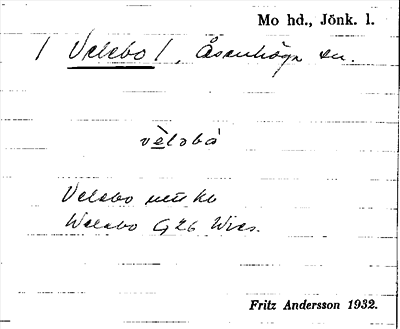 Mo hd., Jönk. l.
/ Velebo /, Åsenhöga sn.
vèləbo
Velebo
Welebo G26 Wies.
Fritz Andersson 1932.